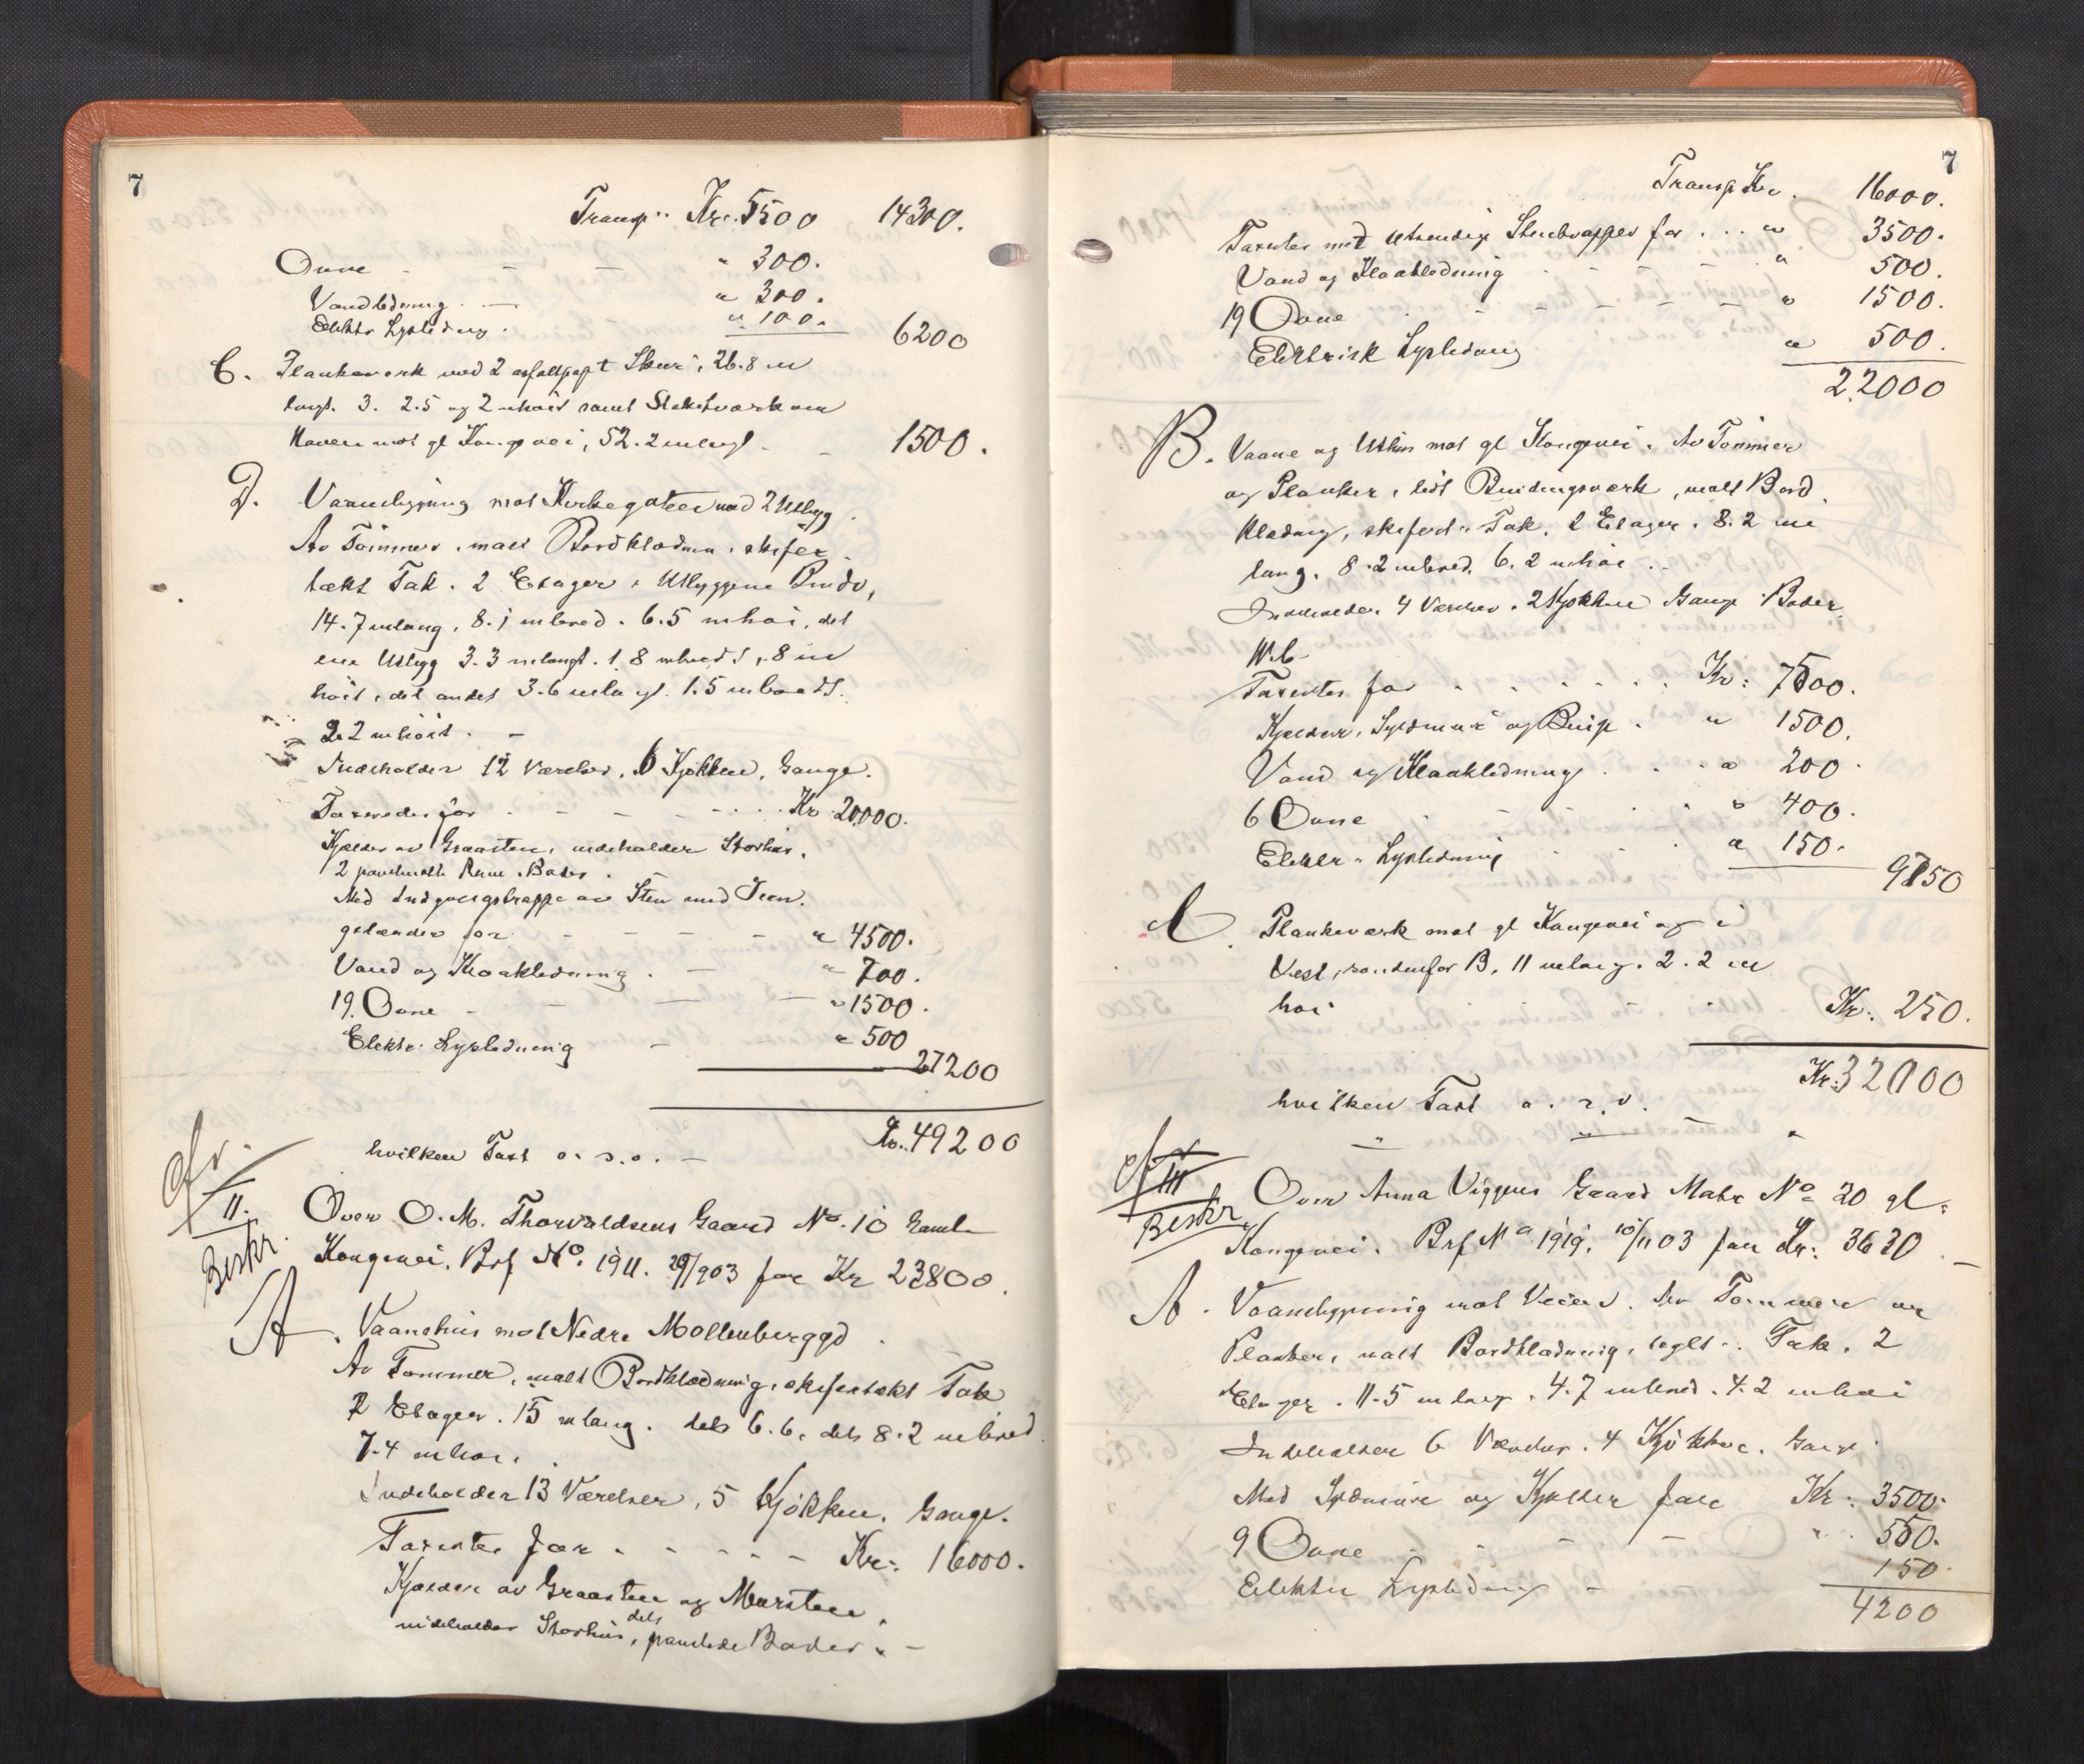 7
Transp. Kr. 5500 14300.
Ovne - - - " 300.
Vandledning. — " 300.
Elektr Lysledning. " 100. 6200
C. Plankeverk med 2 asfaltpapt Skur, 26.8 m
langt. 3. 2.5 og 2 m høit samt Stakitværk om
Haven mot gl Kongevei, 52.2 m langt - - 1500.
D. Vaanebygning mot Kirkegaten med 2 Utbygg.
Av Tømmer, malt Bordklædnin, skifer-
tækt Tak. 2 Etager, Utbyggene Bindv,
14.7 m lang, 8.1 m bred. 6.5 m høi, det
ene Utbygg 3.3 m langt. 1.8 m bredt, .8 m
høit, det andet 3.6 m langt. 1.5 m bredt.
2.2 m høit. -
Indeholder 12 Værelser, 6 Kjøkken, Gange.
Taxeredes for - - - - - Kr. 20,000.
Kjelder av Graasten, indeholder Storhus,
2 panelmalte Rum, Boder.
Med Indgangstrappe av Sten med Jern-
gelænder for - - - - " 4500.
Vand og Kloakledning. — " 700.
19. Ovne - - — — " 1500.
Elektr. Lysledning — " 500
27200
hvilken Taxt o. s. v. — Kr. 49200
Cfr.
II.
Beskr.
Over O. M. Thorvaldsens Gaard No. 10 Gamle
Kongevei, Brf No. 1911. 29/9 03 for Kr 23800.
A. Vaanehus mot Nedre Møllenberggd.
Av Tømmer, malt Bordklædning, skifertækt Tak
2 Etager. 15 m lang. dels 6.6, dels 8.2 m bred
7.4 m høi.
Indeholder 13 Værelser, 5 Kjøkken, Gange.
Taxertes for - - - - - Kr. 16000.
Kjelder av Graasten og Mursten,
indeholder Storhus, dels panelede Boder. -
7
Transp Kr. 16000.
Taxertes med utvendige Stentrapper for . . . " 3500.
Vand og Kloakledning - - - - " 500.
19 Ovne - - - - " 1500.
Elektrisk Lysledning " 500.
22000
B. Vaane og Uthus mot gl Kongevei. Av Tømmer
og Planker, lidt Bindingsværk, malt Bord-
klædning, skifert. Tak. 2 Etager. 8.2 m
lang. 8.2 m bred. 6.2 m høi . .
Indeholder 4 Værelser. 2 Kjøkken Gange Boder,
W.C.
Taxertes for . . . . . . Kr: 7500.
Kjelder, Syldmur og Beisp. " 1500.
Vand og Kloakledning . . . " 200.
6 Ovne . . . . " 400.
Elektr. Lysledning . . " 150.
9750
C. Plankeværk mot gl Kongevei og i
Vest, søndenfor B, 11 m lang. 2.2 m
høi . . . Kr. 250.
Kr: 32000
hvilken Taxt o. s. v.
— " — " — "
Cf
III
Beskr
Over Anna Viggens Gaard Matr No 20 gl.
Kongevei. Brf No 1919. 10/11 03 for Kr: 3630 —
A. Vaanebygning mot Veien. Av Tømmer og
Planker, malt Bordklædning, teglt. Tak. 2
Etager. 11.5 m lang. 4.7 m bred. 4.2 m høi
Indeholder 6 Værelser. 4 Kjøkken. Gang.
Med Syldmure og Kjelder for Kr: 3500.
9 Ovne - - - - " 550.
Elektr Lysledning - 150.
4200